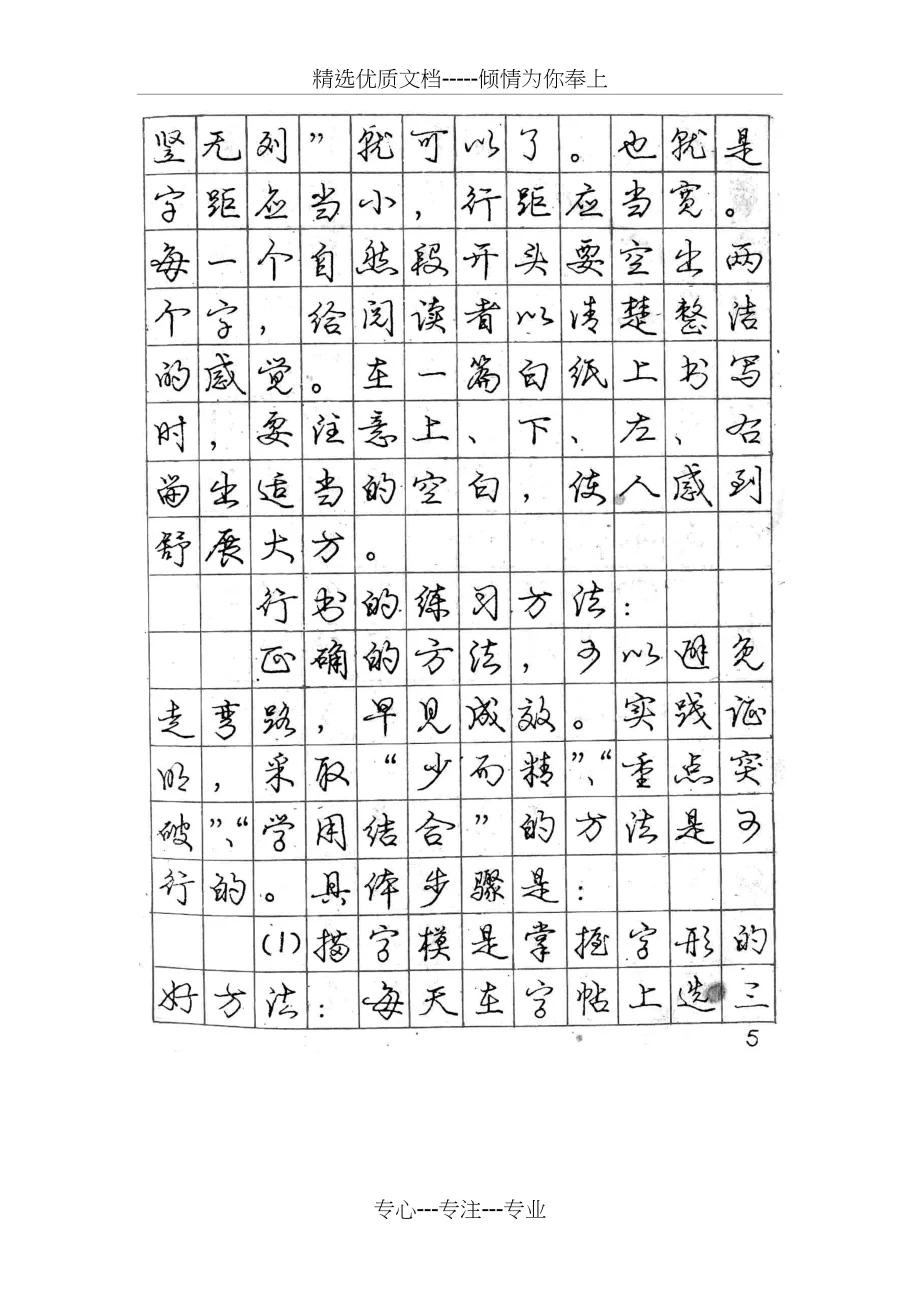 精选优质文档-----倾情为你奉上
竖无列”就可以了。也就是
字距应当小，行距应当宽。
每一个自然段开头要空出两
个字，给阅读者以清楚整洁
的感觉。在一篇白纸上书写
时，要注意上、下、左、右
留出适当的空白，使人感到
舒展大方。
行书的练习方法：
正确的方法，可以避免
走弯路，早见成效。实践证
明，采取“少而精”、“重点突
破”、“学用结合”的方法是可
行的。具体步骤是：
(1)描字模是掌握字形的
好方法：每天在字帖上选三
5
专心---专注---专业